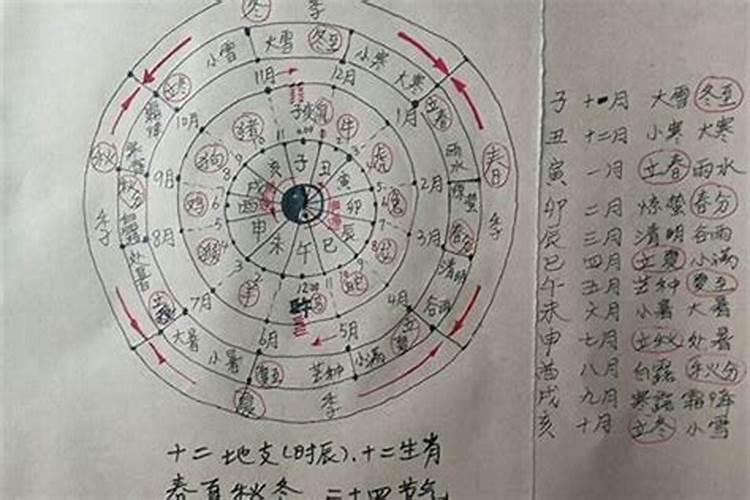 冬 季
小雪 大雪 冬至 小寒 大寒
立冬 11月 12月 立春
10月 子 鼠 1月
猪 牛
秋 狗 亥 子 丑 虎 雨水 春
9月 戌 寅 2月
秋分 鸡 酉 卯 兔 惊蛰
季 申 辰 季
8月 猴 未 午 巳 3月 春分
处暑 羊 蛇 清明
立秋 7月 12:00 4月 谷雨
大暑 6月 5月 立夏
小暑 夏至 芒种 小满
夏 季
子 十一月 大雪 冬至
丑 十二月 小寒 大寒
寅 一月 立春 雨水
卯 二月 惊蛰 春分
辰 三月 清明 谷雨
巳 四月 立夏 小满
午 五月 芒种 夏至
未 六月 小暑 大暑
申 七月 立秋 处暑
酉 八月 白露 秋分
戌 九月 寒露 霜降
亥 十月 立冬 小雪
十二地支(时辰)、十二生肖
春夏秋冬 二十四节气